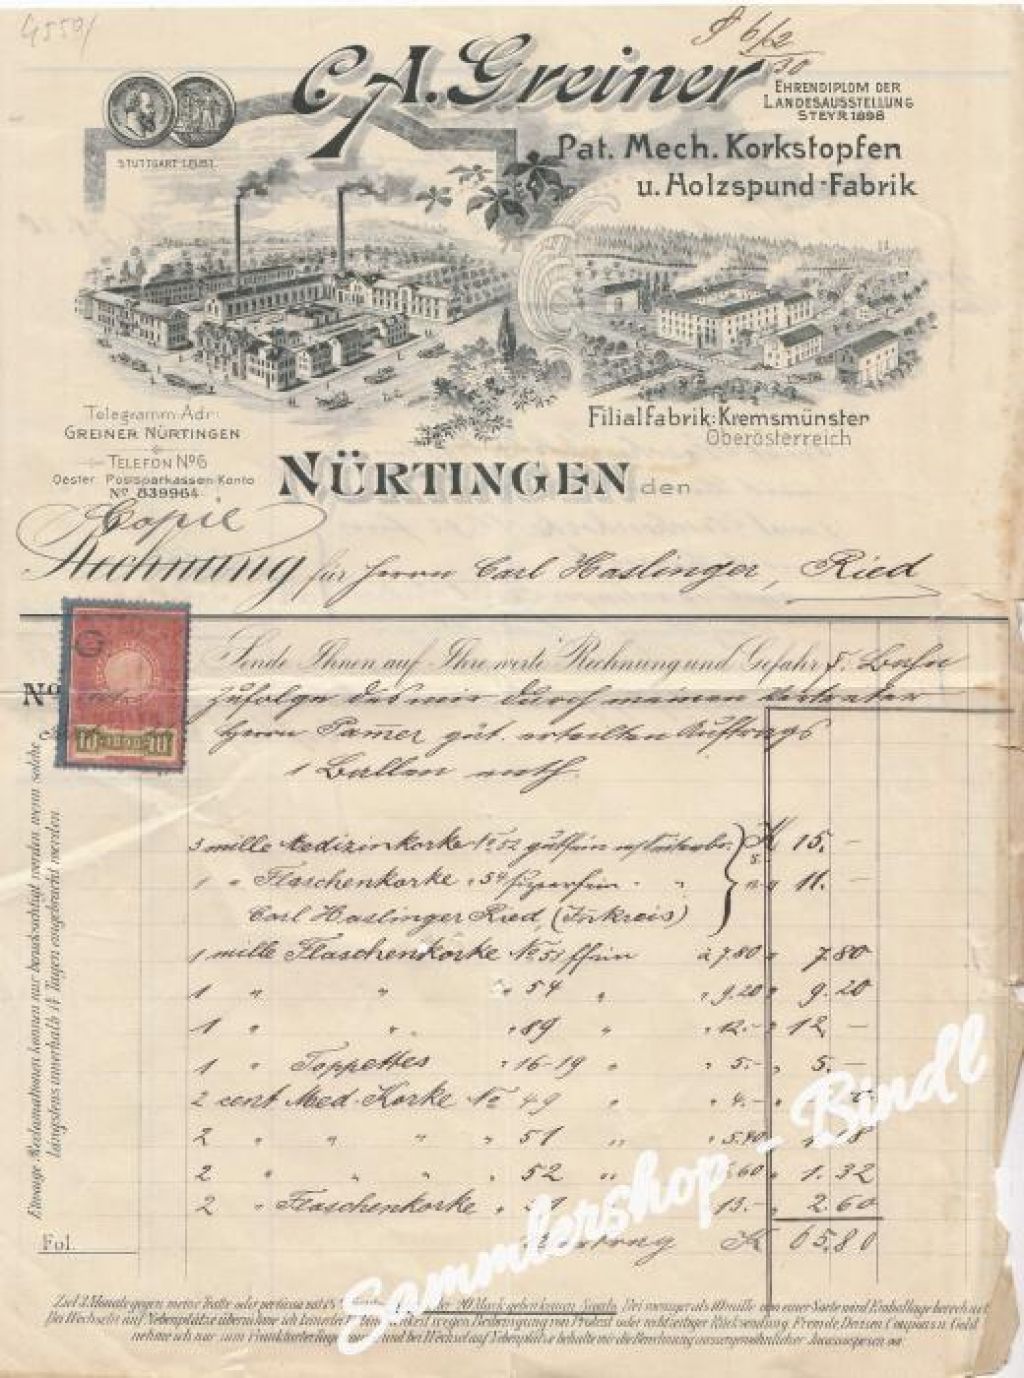 4559/
6/2
30
C. A. Greiner
EHRENDIPLOM DER
LANDESAUSSTELLUNG
STEYR 1898
STUTTGART 1881
Pat. Mech. Korkstopfen
u. Holzspund-Fabrik
Telegramm-Adr:
GREINER NÜRTINGEN
TELEFON No 6
Oester. Postsparkassen-Konto
No 839964
Filialfabrik: Kremsmünster
Oberösterreich
NÜRTINGEN den
Copie
Rechnung für Herrn Carl Haslinger, Ried
Sende Ihnen auf Ihre werte Rechnung und Gefahr p. Bahn
No
zufolge des mir durch meinen Vertreter
Herrn Pamer güt. erteilten Auftrags
1 Ballen enth.
10 10
Etwaige Reclamationen können nur berücksichtigt werden wenn solche
längstens innerhalb 14 Tagen eingebracht werden
3 mille Medizinkorke No 52 gutfein K 5. 15. —
1 " Flaschenkorke " 54 superfein " " 11. —
Carl Haslinger Ried, (Innkreis)
1 mille Flaschenkorke No 51 ffein à 7.80 " 7.80
1 " " " 54 " " 9.20 " 9.20
1 " " " 89 " " 12.- " 12 —
1 " Toppettes " 16-19 " " 5.- " 5. —
2 cent Med. Korke No 49 " " 4.- "
2 " " " " 51 " " 5.40
2 " " " " 52 " 60 " 1.32
2 " Flaschenkorke " " 13.- " 2.60
K 65.80
Fol.
Ziel 3 Monate gegen meine Tratte oder per Cassa mit Bei weniger als 10 mille von einer Sorte wird Emballage berechnet.
Bei Wechseln auf Nebenplätze übernehme ich keinerlei wegen Beibringung von Protest oder rechtzeitiger Rücksendung. Fremde Devisen Coupons u. Geld
nehme ich nur zum Frankfurter und bei Wechsel auf Nebenplätze behalte mir die Berechnung
Sammlershop - Bindl